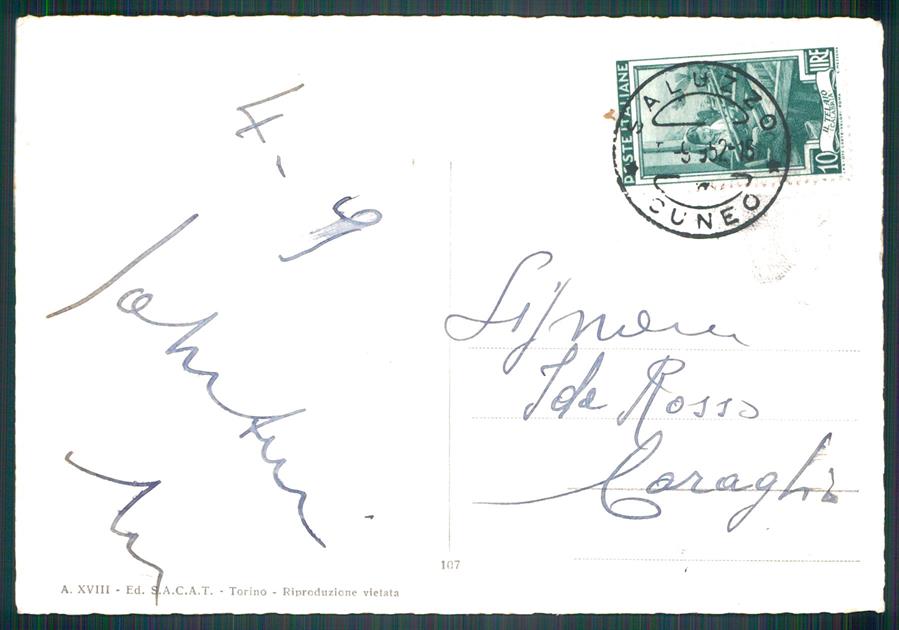 POSTE ITALIANE
LIRE
10
IL TELAIO
CALABRIA
SALUZZO
CUNEO
4-9
Signora
Ida Rosso
Caraglio
107
A. XVIII - Ed. S.A.C.A.T. - Torino - Riproduzione vietata